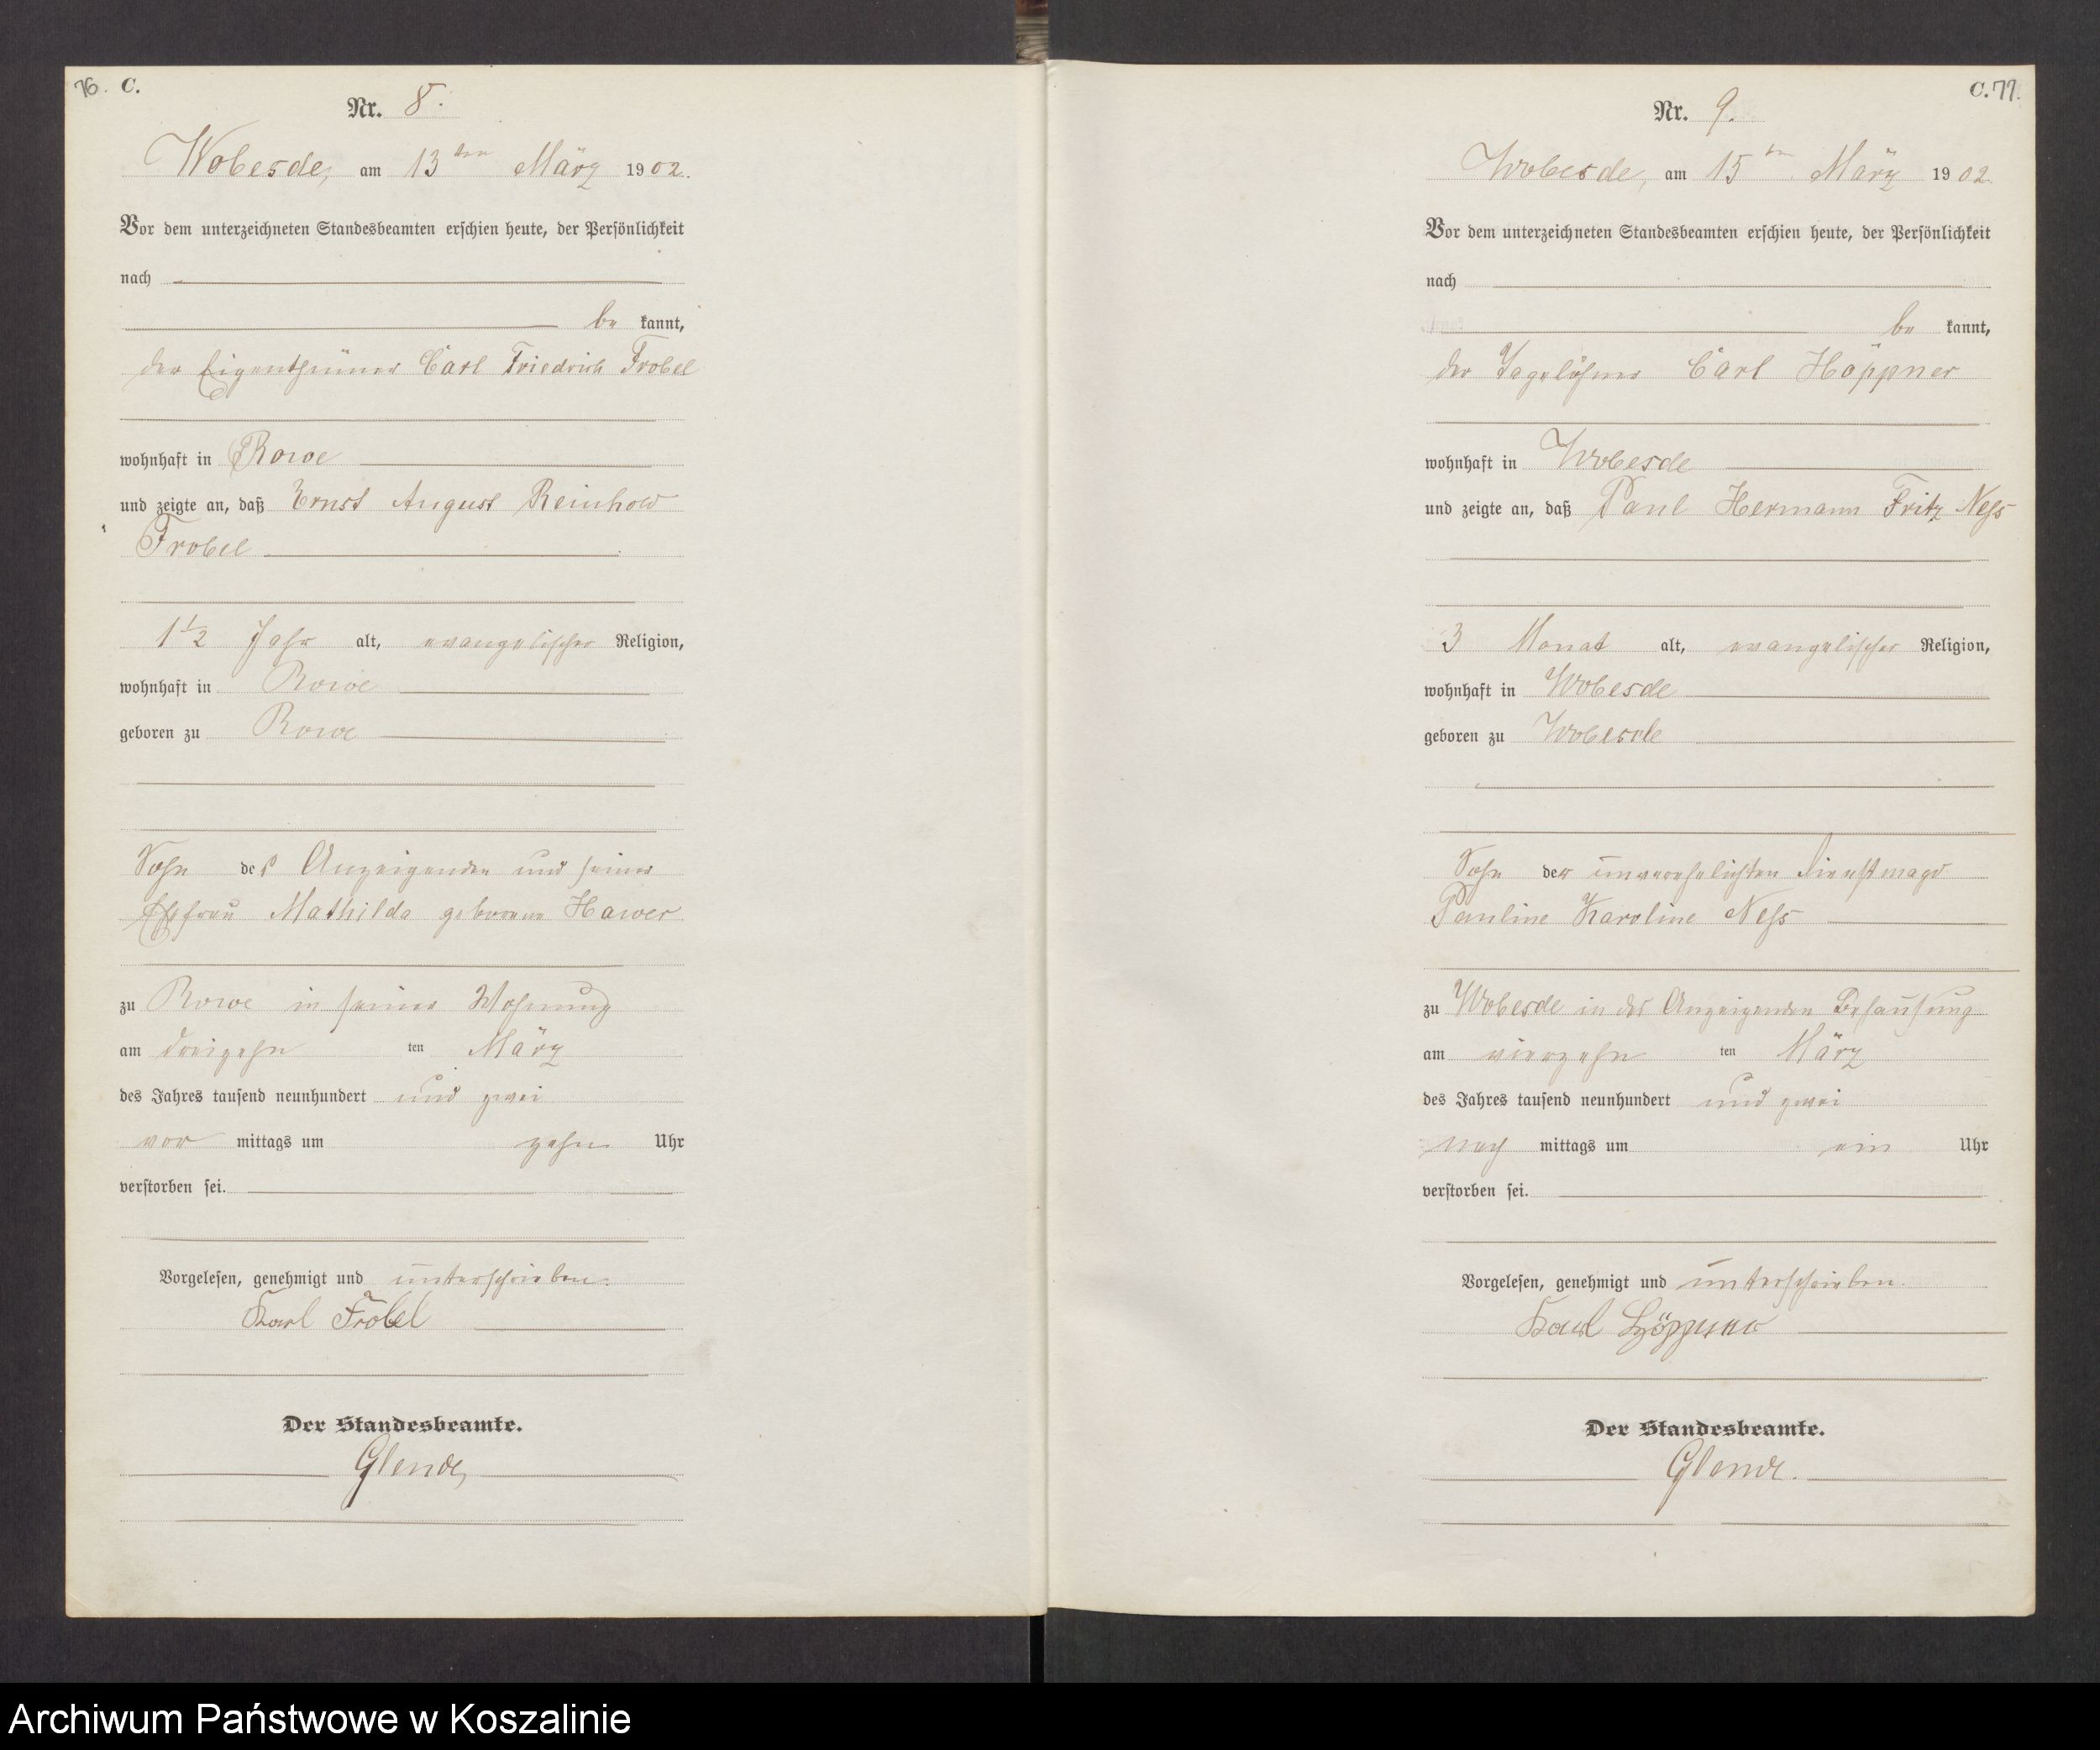 76. C.
Nr. 8.
Wobesde, am 13ten März 1902.
Vor dem unterzeichneten Standesbeamten erschien heute, der Persönlichkeit
nach
be kannt,
der Eigenthümer Carl Friedrich Frobel
wohnhaft in Rowe
und zeigte an, daß Ernst August Reinhold
Frobel
1 1/2 Jahr alt, evangelischer Religion,
wohnhaft in Rowe
geboren zu Rowe
Sohn des Anzeigenden und seiner
Ehefrau Mathilda geborene Hawer
zu Rowe in seiner Wohnung
am dreizehn ten März
des Jahres tausend neunhundert und zwei
vor mittags um zehn Uhr
verstorben sei.
Vorgelesen, genehmigt und unterschrieben.
Karl Frobel
Der Standesbeamte.
Glende
C. 77.
Nr. 9.
Wobesde, am 15ten März 1902
Vor dem unterzeichneten Standesbeamten erschien heute, der Persönlichkeit
nach
be kannt,
der Tagelöhner Carl Höppner
wohnhaft in Wobesde
und zeigte an, daß Paul Hermann Fritz Neß
3 Monat alt, evangelischer Religion,
wohnhaft in Wobesde
geboren zu Wobesde
Sohn der unverehelichten Dienstmagd
Pauline Karoline Neß
zu Wobesde in des Anzeigenden Behausung
am vierzehn ten März
des Jahres tausend neunhundert und zwei
nach mittags um ein Uhr
verstorben sei.
Vorgelesen, genehmigt und unterschrieben.
Karl Höppner
Der Standesbeamte.
Glende.
Archiwum Państwowe w Koszalinie